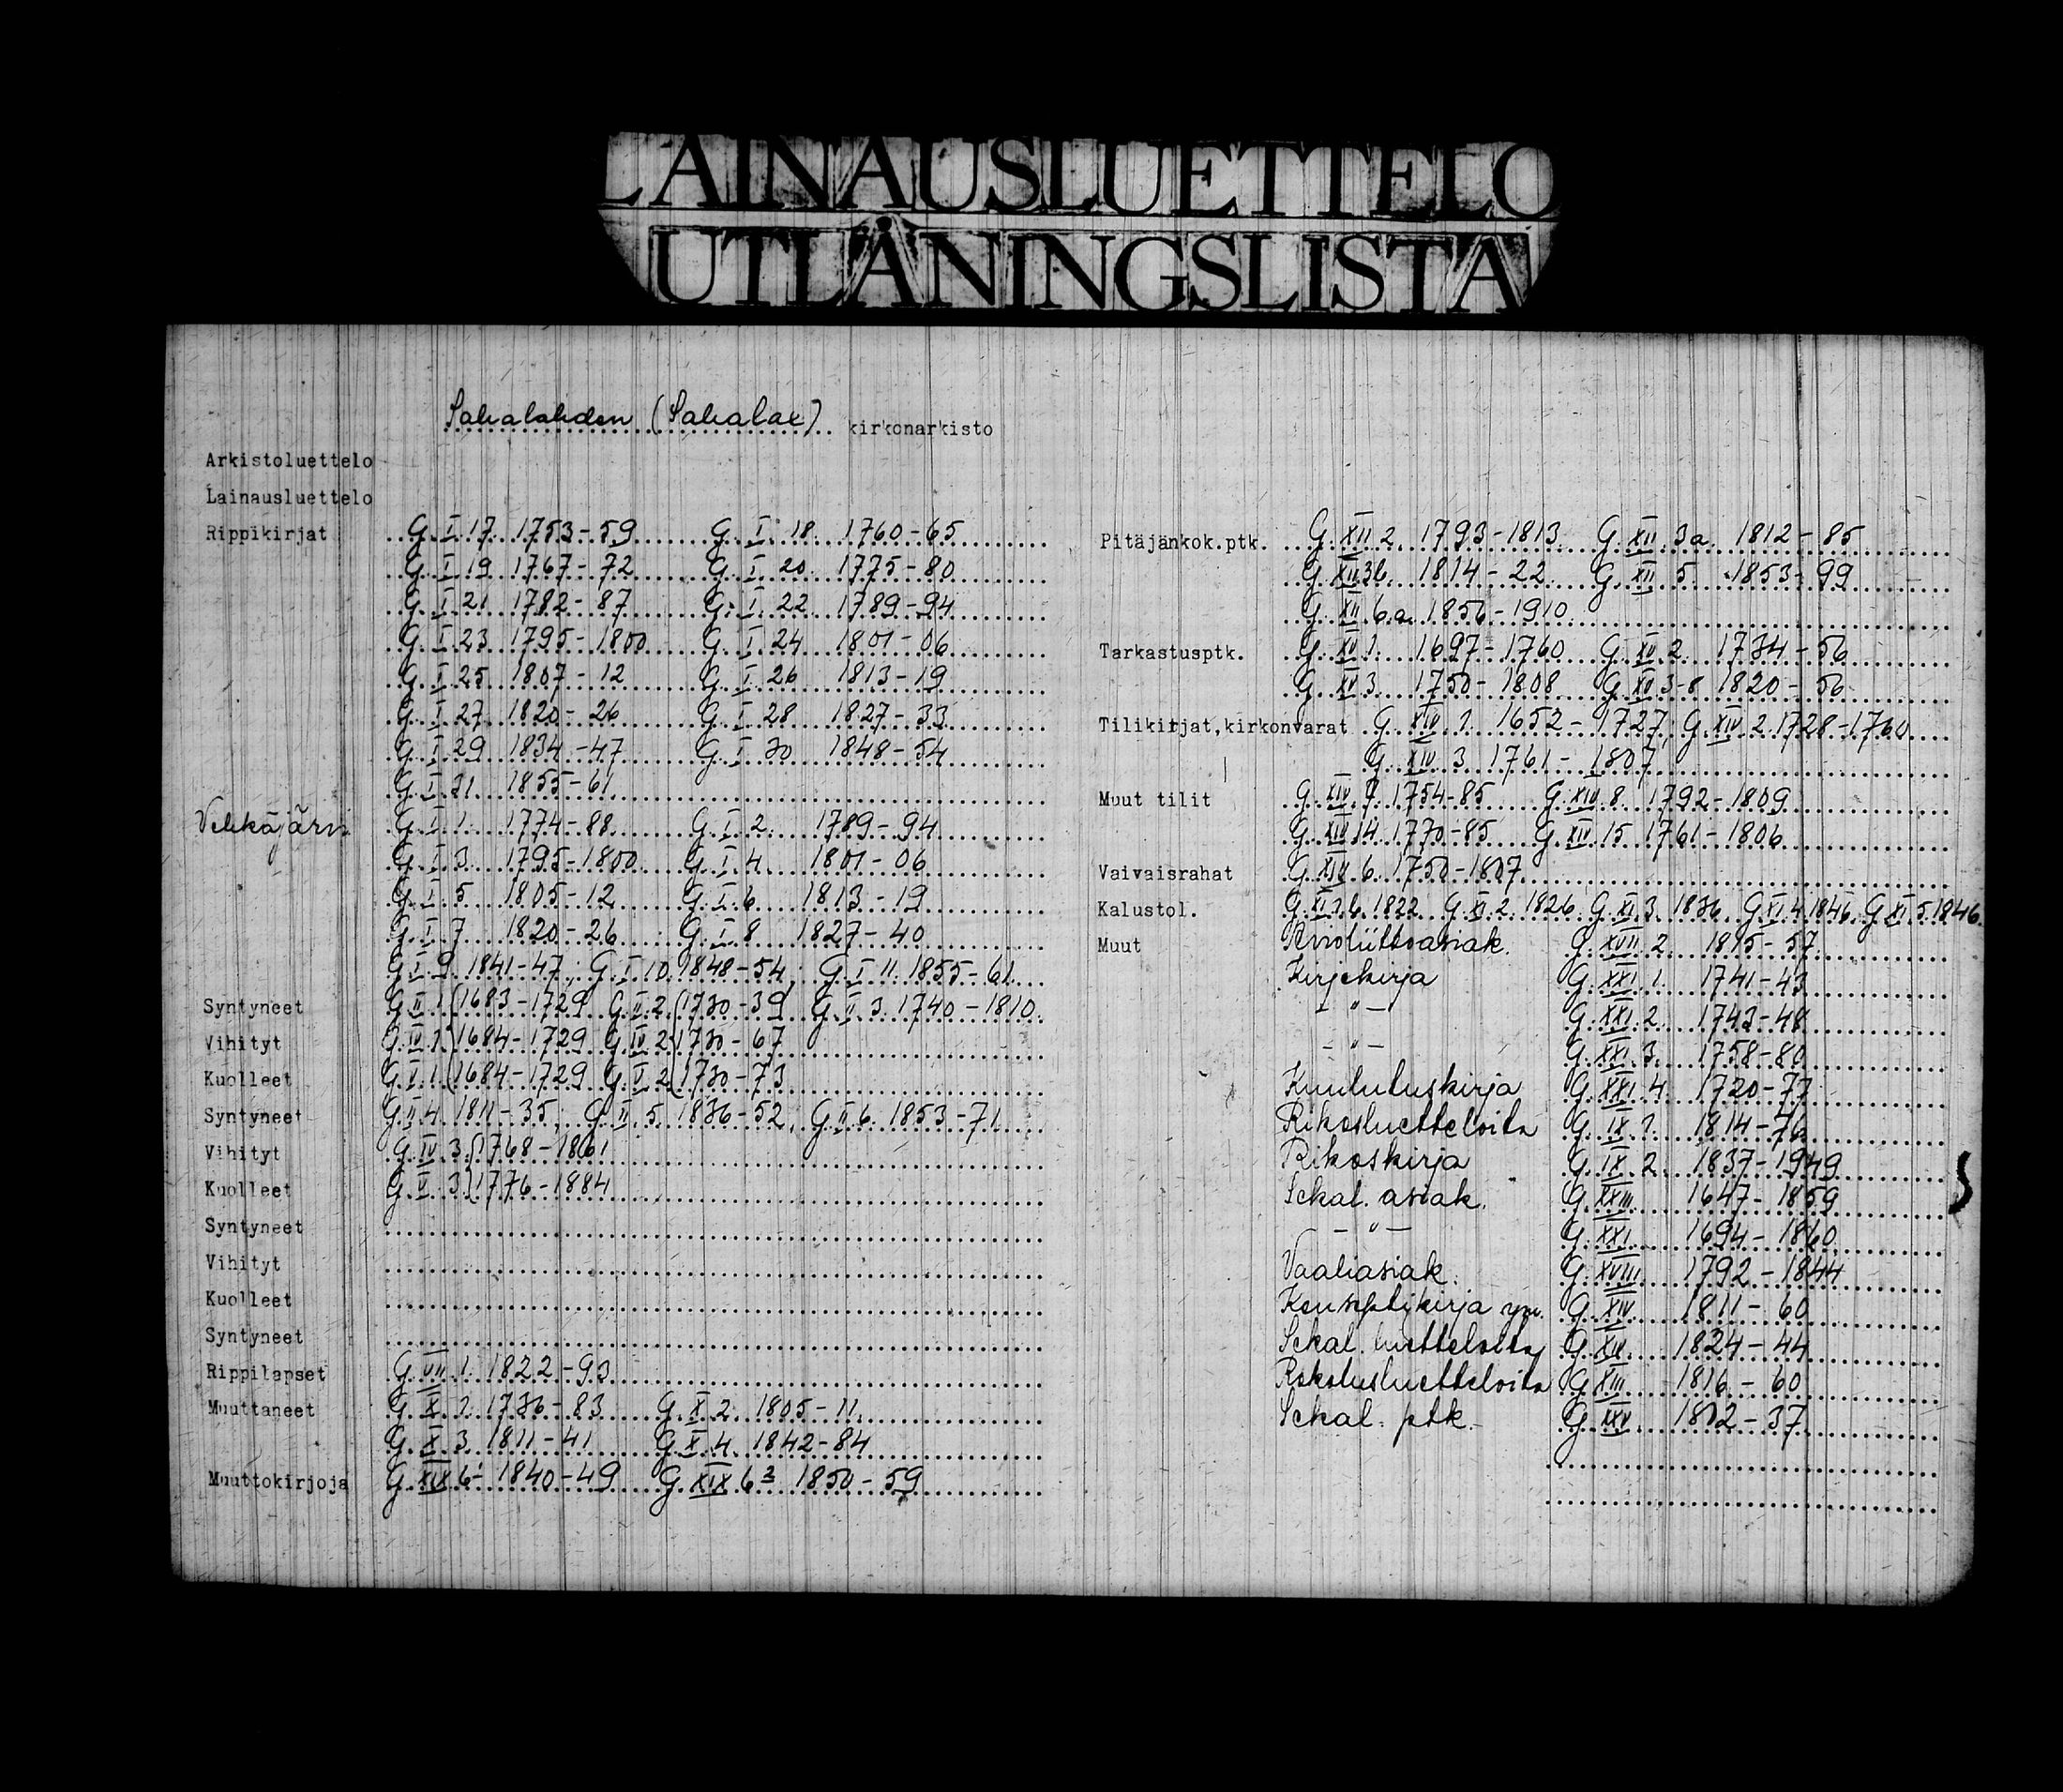 LAINAUSLUETTELO
UTLÅNINGSLISTA
Sahalahden (Sahalax) kirkonarkisto
Arkistoluettelo
Lainausluettelo
Rippikirjat G.I.17 1753-59 G.I.18 1760-65
G.I.19 1767-72 G.I.20 1775-80
G.I.21 1782-87 G.I.22 1789-94
G.I.23 1795-1800 G.I.24 1801-06
G.I.25 1807-12 G.I.26 1813-19
G.I.27 1820-26 G.I.28 1827-33
G.I.29 1834-47 G.I.30 1848-54
G.I.31 1855-61
Vehkajärvi G.I.1 1774-88 G.I.2 1789-94
G.I.3 1795-1800 G.I.4 1801-06
G.I.5 1805-12 G.I.6 1813-19
G.I.7 1820-26 G.I.8 1827-40
G.I.9 1841-47; G.I.10 1848-54; G.I.11 1855-61
Syntyneet G.II.1 (1683-1729 G.II.2 (1730-39 G.II.3 1740-1810
Vihityt G.IV.1 1684-1729 G.IV.2 1730-67
Kuolleet G.V.1 1684-1729 G.V.2 1730-73
Syntyneet G.II.4 1811-35; G.II.5 1836-52; G.II.6 1853-71
Vihityt G.IV.3 1768-1861
Kuolleet G.V.3 1776-1884
Syntyneet
Vihityt
Kuolleet
Syntyneet
Rippilapset G.VII.1 1822-93
Muuttaneet G.X.1 1786-83 G.X.2 1805-11
G.X.3 1811-41 G.X.4 1842-84
Muuttokirjoja G.XIX 6¹ 1840-49 G.XIX 6² 1850-59
Pitäjänkok.ptk. G.XII.2 1793-1813 G.XII.3a 1812-85
G.XII.3b 1814-22 G.XII.5 1853-99
G.XII.6a 1856-1910
Tarkastusptk. G.XV.1 1697-1760 G.XV.2 1734-56
G.XV.3 1750-1808 G.XV.3-8 1820-56
Tilikirjat,kirkonvarat G.XIV.1 1652-1727; G.XIV.2 1728-1760
G.XIV.3 1761-1807
Muut tilit G.XIV.7 1754-85 G.XIV.8 1792-1809
G.XIV.14 1770-85 G.XIV.15 1761-1806
Vaivaisrahat G.XIV.6 1750-1807
Kalustol. G.XI.1b 1822 G.XI.2 1826 G.XI.3 1836 G.XI.4 1846 G.XI.5 1846
Muut Avioliittoasiak. G.XVII.2 1815-57
Kirjekirja G.XXI.1 1741-43
- " - G.XXI.2 1743-48
- " - G.XXI.3 1758-80
Kuulutuskirja G.XXI.4 1720-77
Rikosluetteloita G.IX.1 1814-76
Rikoskirja G.IX.2 1837-1949
Sekal. asiak. G.XXIII 1647-1859
- " - G.XXI 1694-1860
Vaaliasiak. G.XVIII 1792-1844
Konseptikirja ym. G.XIV 1811-60
Sekal. luetteloita G.XIV 1824-44
Rokotusluetteloita G.XIII 1816-60
Sekal. ptk. G.XXV 1802-37